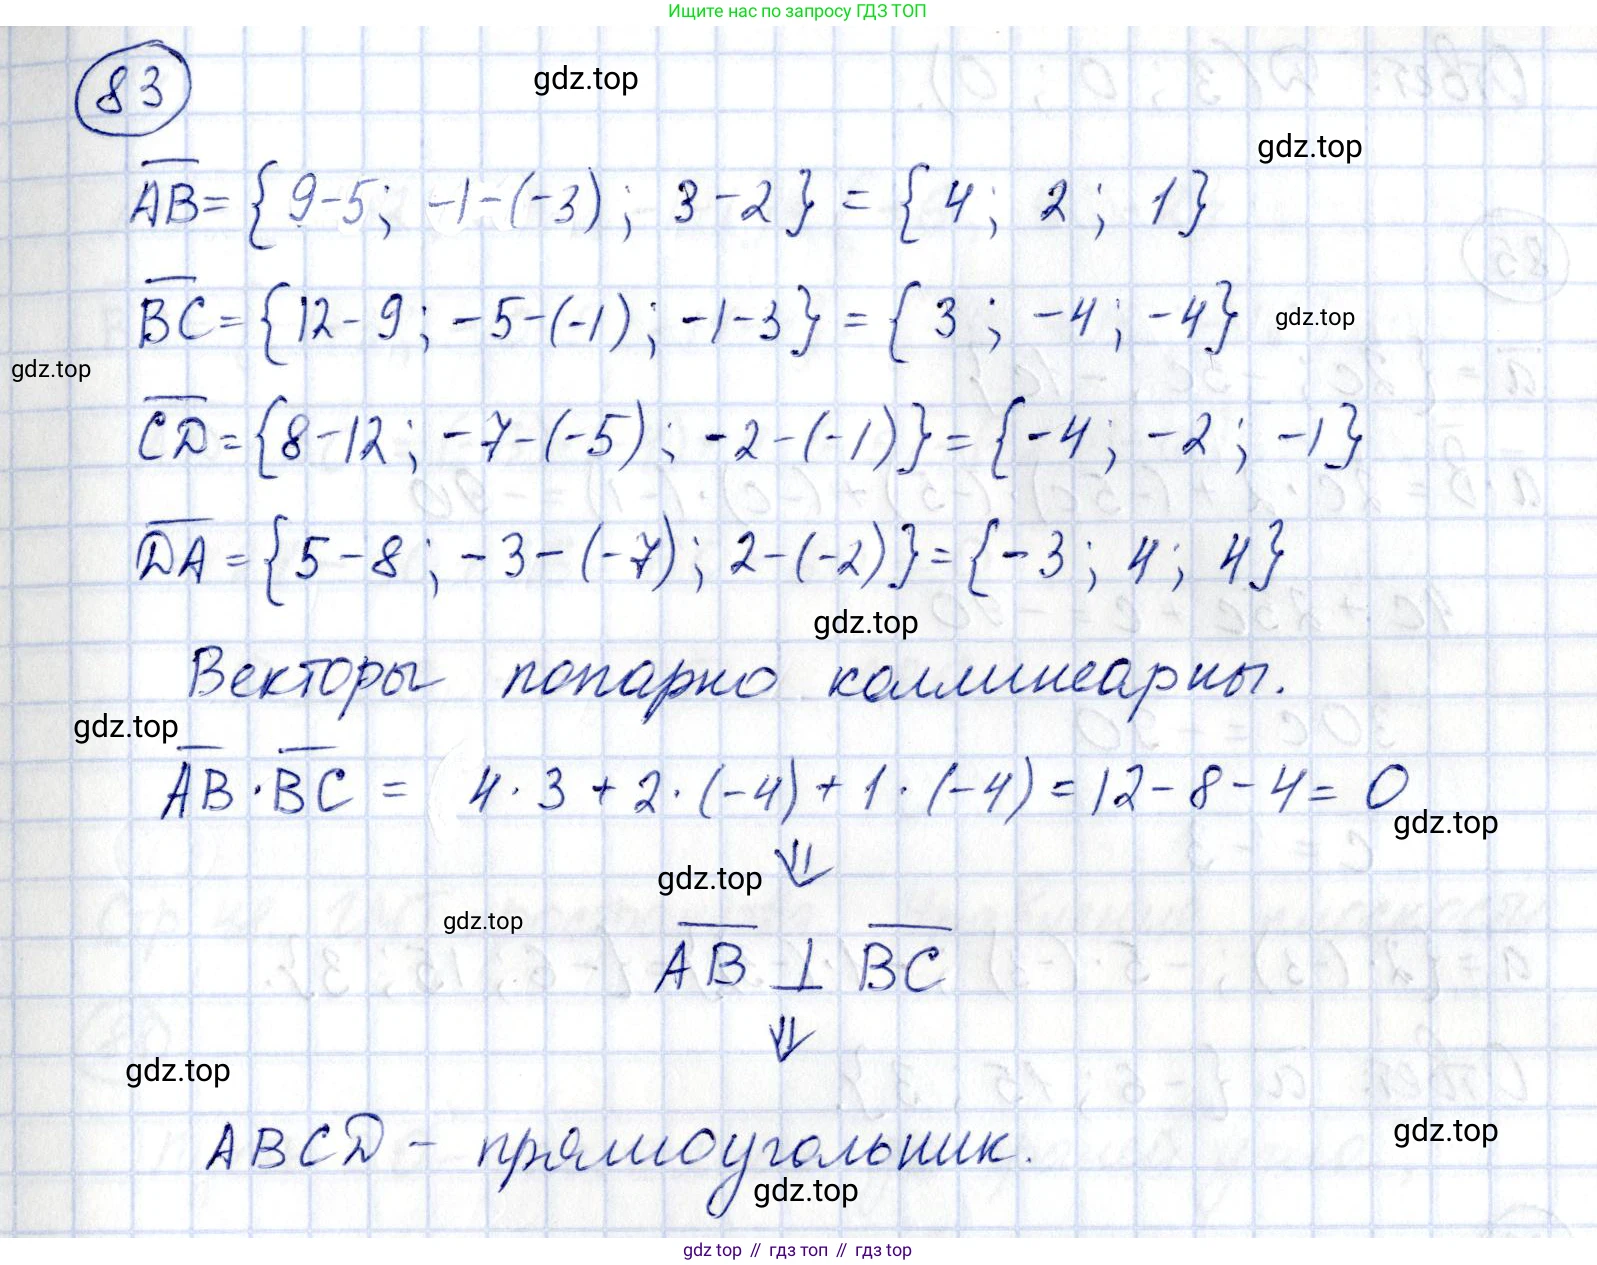 Ищите нас по запросу ГДЗ ТОП
83
gdz.top
gdz.top
AB = {9-5; -1-(-3); 3-2} = {4; 2; 1}
BC = {12-9; -5-(-1); -1-3} = {3; -4; -4}
gdz.top
gdz.top
CD = {8-12; -7-(-5); -2-(-1)} = {-4; -2; -1}
DA = {5-8; -3-(-7); 2-(-2)} = {-3; 4; 4}
gdz.top
Векторы попарно коллинеарны.
gdz.top
AB · BC = 4 · 3 + 2 · (-4) + 1 · (-4) = 12 - 8 - 4 = 0
gdz.top
⇓
gdz.top
gdz.top
AB ⊥ BC
⇓
gdz.top
gdz.top
ABCD - прямоугольник.
gdz.top
gdz top // гдз топ // gdz top